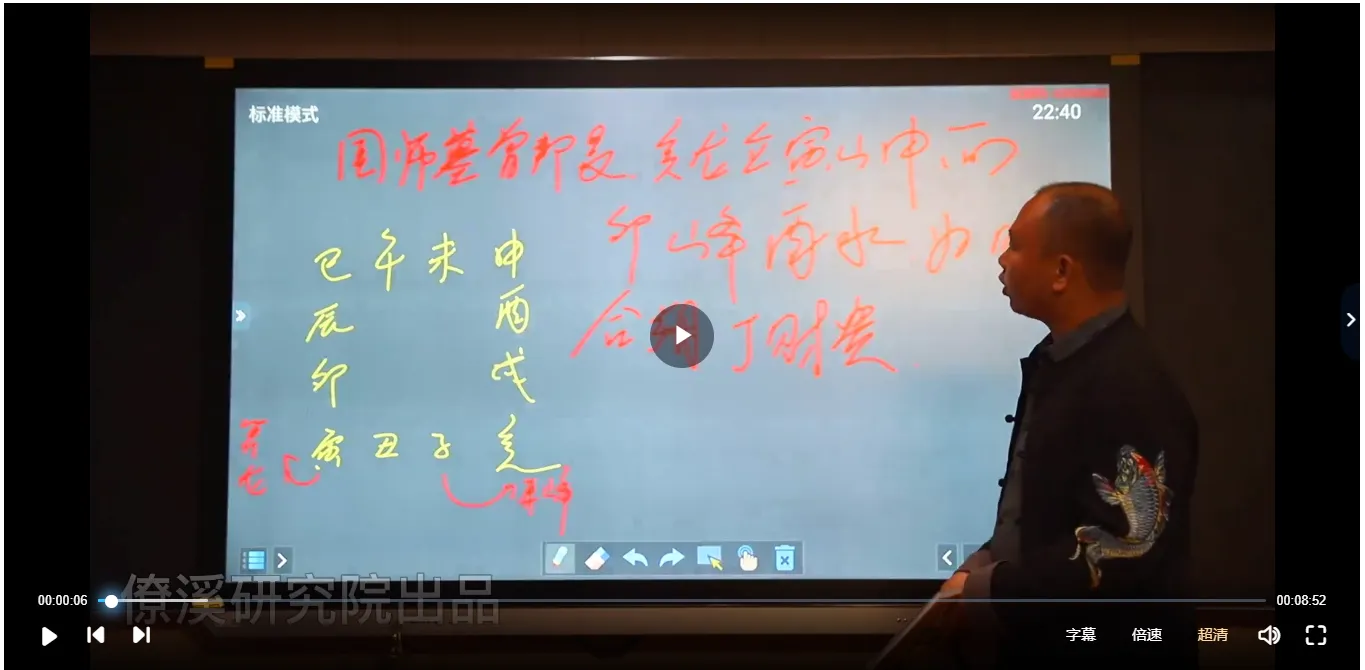 标准模式
22:40
国师墓曾邦旻 亥龙立寅山申向
卯山峰 酉水
合用丁财贵
巳午未申
辰 酉
卯 戌
寅丑子亥
龙
僚溪研究院出品
00:00:06
00:08:52
字幕 倍速 超清